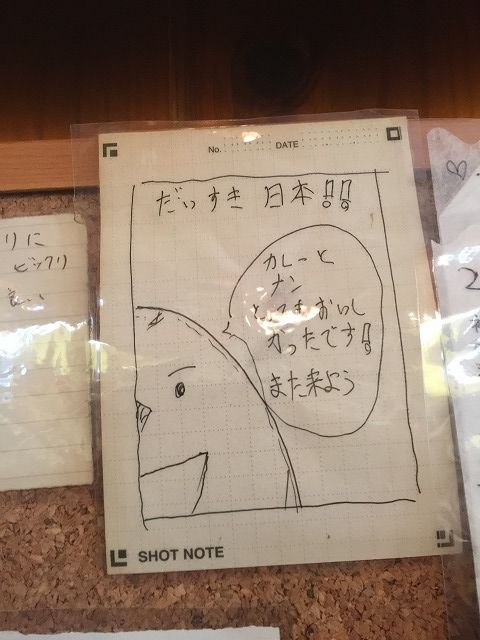 No. DATE
だいすき 日本!!
カレーと
ナン
とてもおいし
かったです!
また来よう
SHOT NOTE
りに
ビックリ
良い
2